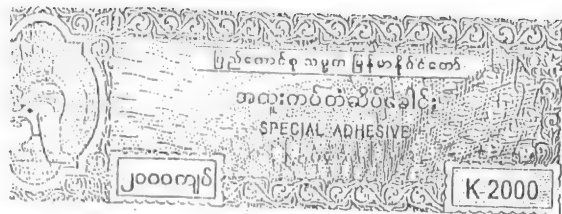 ပြည်ထောင်စု သမ္မတ မြန်မာနိုင်ငံတော်
အထူးကပ်တံဆိပ်ခေါင်း
SPECIAL ADHESIVE
၂၀၀၀ကျပ်
K-2000